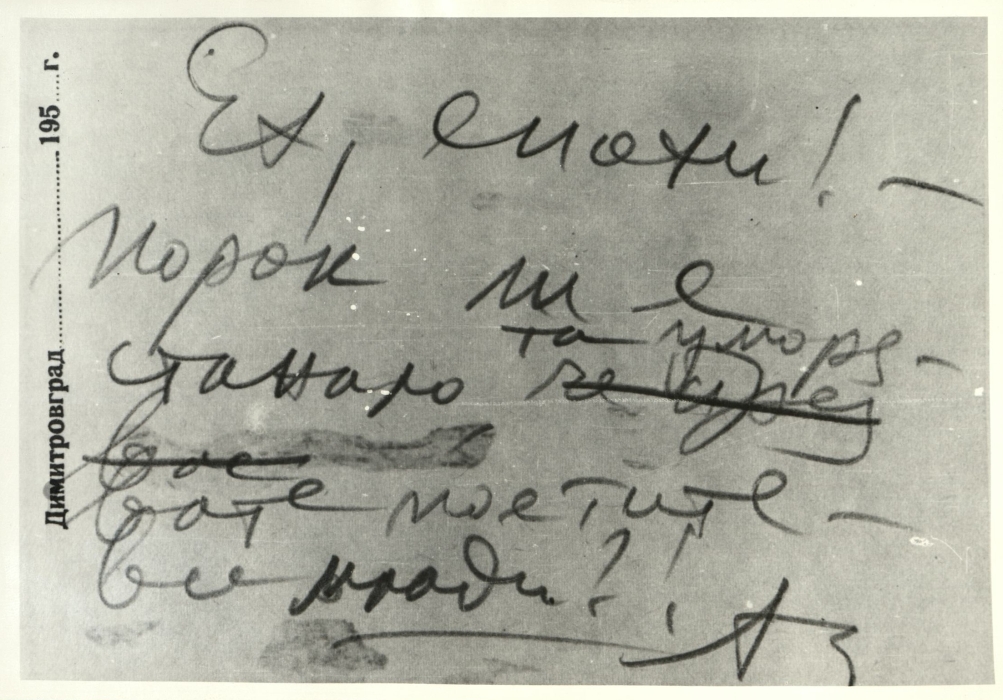 Димитровград .............. 195..... г.
Ех, епохи! –
порок ли е
та уморя-
станало
вате поетите –
все млади?!
Аз